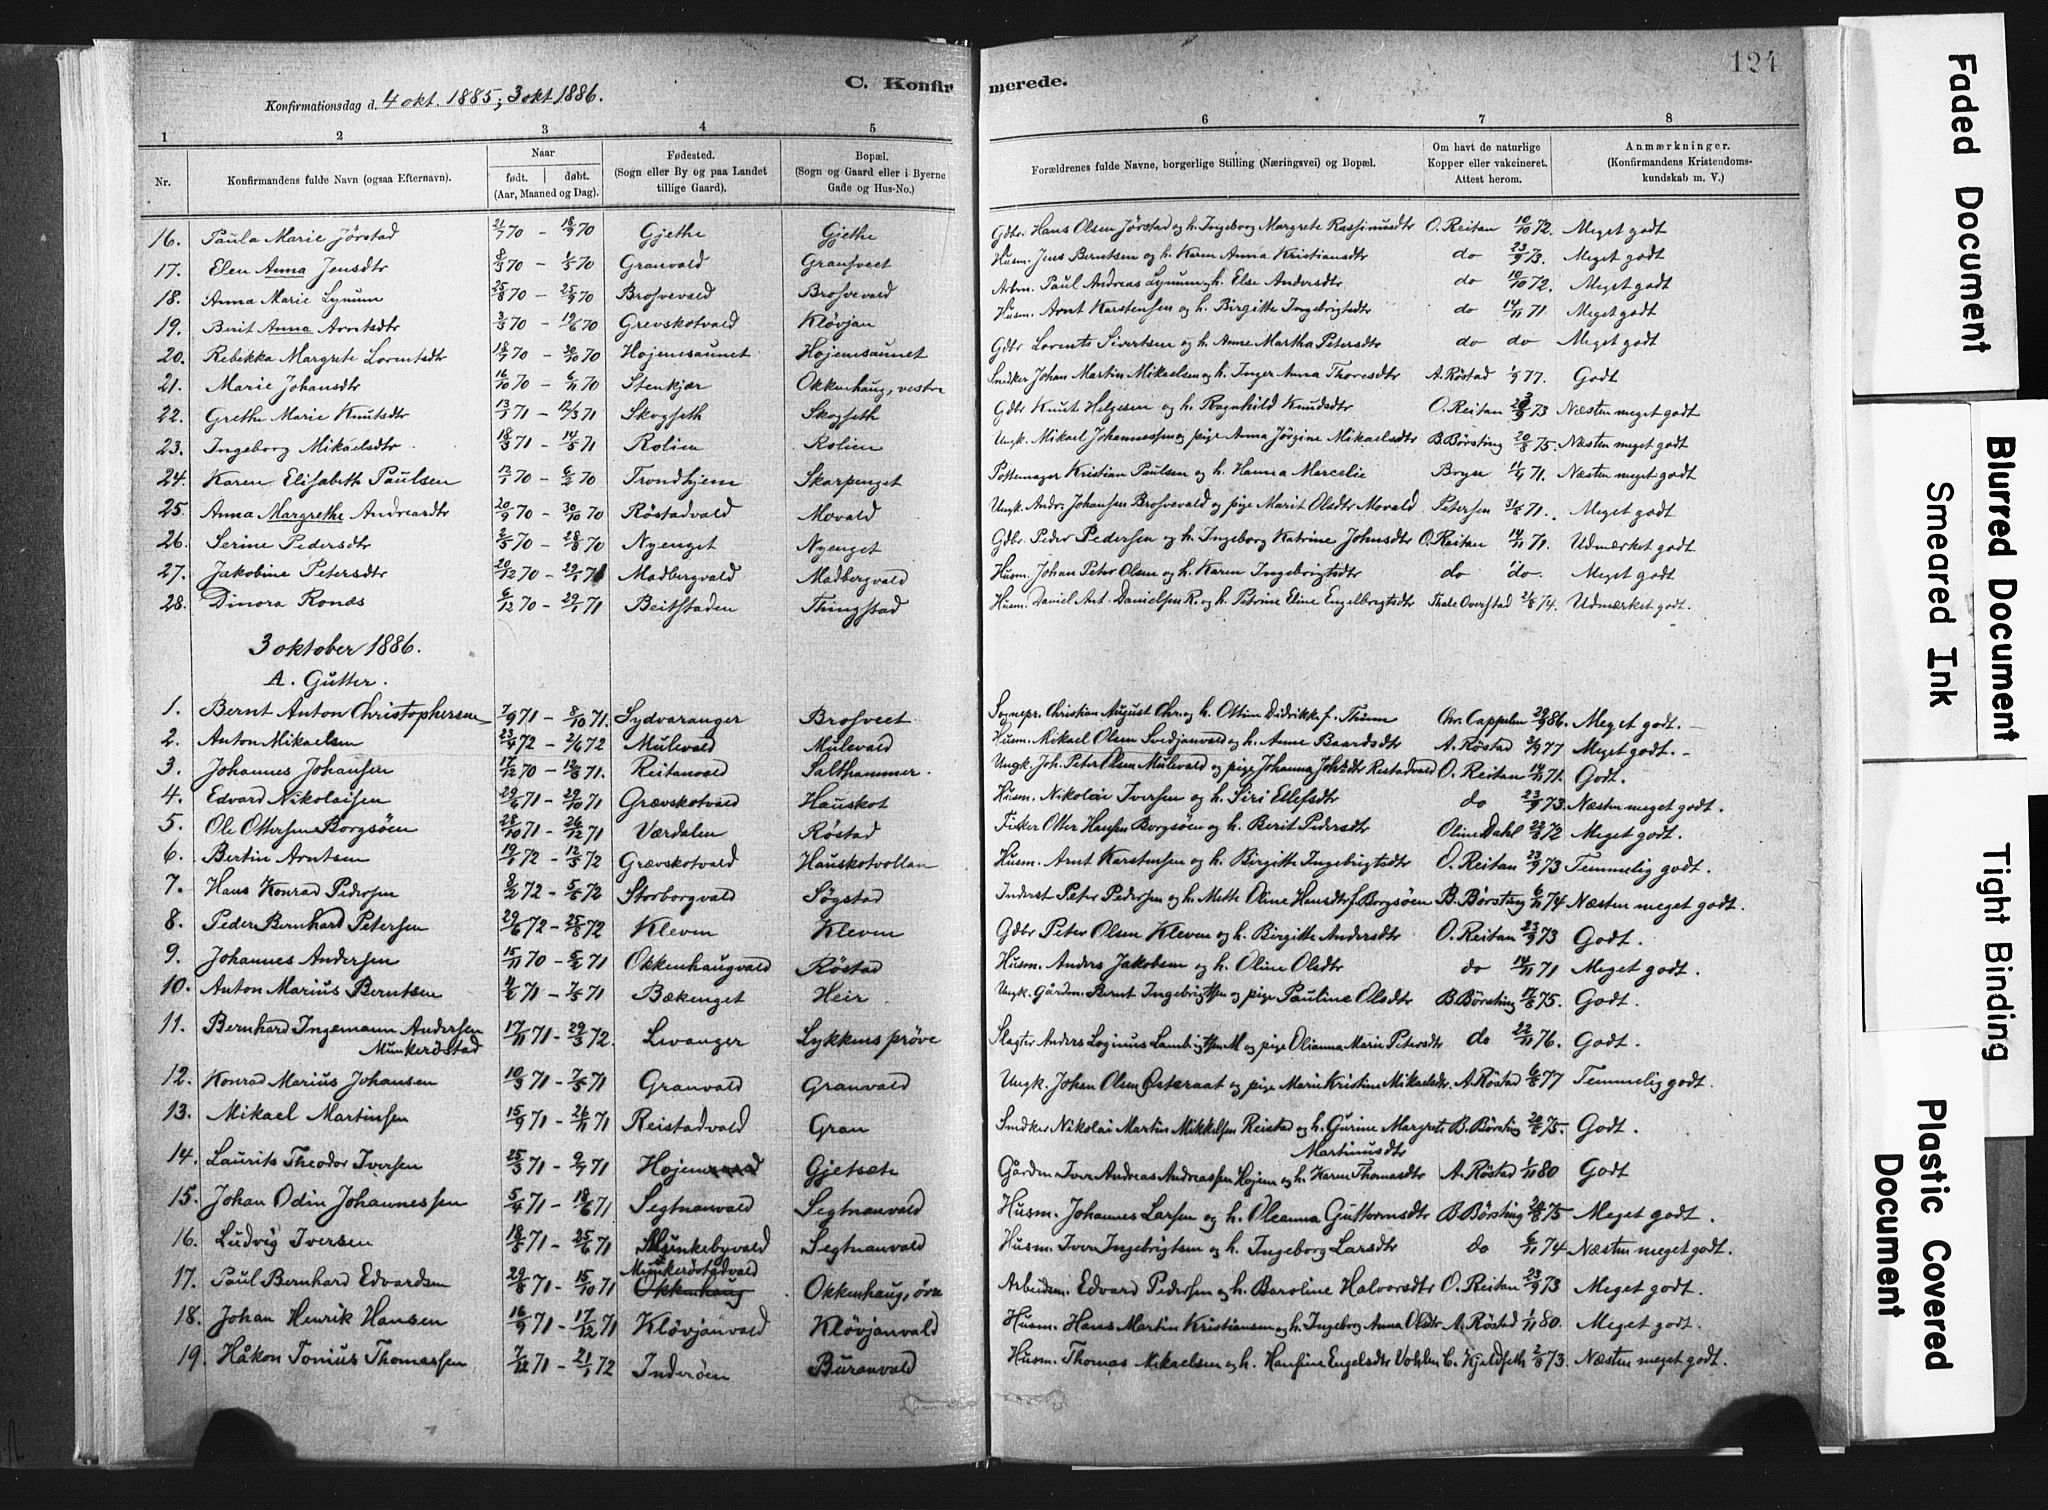 124
C. Konfirmerede.
Konfirmationsdag d. 4 okt. 1885; 3 okt 1886.
1 2 3 4 5 6 7 8
Nr. Konfirmandens fulde Navn (ogsaa Efternavn). Naar født. døbt. (Aar, Maaned og Dag). Fødested. (Sogn eller By og paa Landet tillige Gaard). Bopæl. (Sogn og Gaard eller i Byerne Gade og Hus-No.) Forældrenes fulde Navne, borgerlige Stilling (Næringsvei) og Bopæl. Om havt de naturlige Kopper eller vakcineret. Attest herom. Anmærkninger. (Konfirmandens Kristendomskundskab m. V.)
16. Paula Marie Jørstad 21/7 70 – 18/9 70 Gjethe Gjethe Gdbr. Hans Olsen Jørstad og h. Ingeborg Margrete Rasmusdtr O. Reitan 10/10 72. Meget godt
17. Elen Anna Jensdtr 8/3 70 – 1/5 70 Granvald Gransveet Husm. Jens Berntsen og h. Karen Anna Kristiansdtr do 23/9 73. Meget godt
18. Anna Marie Lynum 25/8 70 – 25/9 70 Brosvevald Brosvevald Arbm. Paul Andreas Lynum og h. Else Andersdtr do 10/10 72. Meget godt
19. Berit Anna Arntsdtr 3/3 70 – 19/6 70 Grevskotvald Kløvjan Husm. Arnt Karstensen og h. Birgitte Ingebrigtsdtr do 14/11 71 Meget godt
20. Rebekka Margrete Lorentsdtr 18/9 70 – 30/10 70 Hojemsaunet Hojemsaunet Gdbr Lorents Sivertsen og h. Anne Martha Petersdtr do do Meget godt
21. Marie Johansdtr 16/10 70 – 6/11 70 Stenkjær Okkenhaug, vestre Snedker Johan Martin Mikaelsen og h. Inger Anna Thoresdtr A. Røstad 1/9 77. Godt
22. Grethe Marie Knutsdtr 13/1 71 – 12/3 71 Skogseth Skogseth Gdbr Knut Helgesen og h. Ragnhild Knudsdtr O. Reitan 23/9 73 Næsten meget godt
23. Ingeborg Mikaelsdtr 18/3 71 – 14/5 71 Rolien Rolien Ungk. Mikael Johannessen og pige Anna Jørgine Mikaelsdtr B. Børsting 20/8 75. Næsten meget godt
24. Karen Elisabeth Paulsen 13/1 70 – 6/2 70 Trondhjem Skarpenget Pottemager Kristian Paulsen og h. Hanna Marcelie Bryn 11/4 71. Næsten meget godt
25. Anna Margrethe Andreasdtr 20/9 70 – 30/10 70 Røstadvald Movald Ungk. Andr. Johansen Brosvevald og pige Marit Olsdtr Movald Petersen 31/8 71. Meget godt
26. Serine Pedersdtr 2/5 70 – 28/8 70 Nyenget Nyenget Gdbr Peder Pedersen og h. Ingeborg Katrine Johnsdtr O. Reitan 14/11 71. Udmærket godt
27. Jakobine Petersdtr 20/12 70 – 29/1 71 Madbergvald Madbergvald Husm. Johan Peter Olsen og h. Karen Ingebrigtsdtr do do. Meget godt
28. Dinora Ronæs 6/12 70 – 29/1 71 Beitstaden Thingstad Husm. Daniel Ant. Danielsen R. og h. Petrine Eline Engelbrigtsdtr Thale Overstad 21/8 74. Udmærket godt.
3 oktober 1886.
A. Gutter.
1. Bernt Anton Christophersen 7/9 71 – 8/10 71. Sydvaranger Brosveet Sognepr. Christian August Chr. og h. Ottine Didrikke f. Thime Chr. Cappelen 29/9 86. Meget godt. –
2. Anton Mikaelsen 23/4 72 – 2/6 72 Mulevald Mulevald Husm. Mikael Olsen Svedjanvald og h. Anne Baardsdtr A. Røstad 3/9 77 Meget godt. –
3. Johannes Johansen 17/12 70 – 13/8 71. Reitanvald Salthammer. Ungk. Joh. Peter Olsen Mulevald og pige Johanna Johsdtr Reitanvald O. Reitan 14/11 71. Godt.
4. Edvard Nikolaisen 29/6 71 – 29/10 71 Grævskotvald Hauskot Husm. Nikolai Iversen og h. Siri Ellefsdtr do 23/9 73. Næsten meget godt.
5. Ole Ottersen Borgsøen 28/10 71 – 26/12 71 Værdalen Røstad Fisker Otter Hansen Borgsøen og h. Berit Pedersdtr Oline Dahl 22/8 72 Meget godt.
6. Bertin Arntsen 19/1 72 – 12/5 72 Grævskotvald Hauskotvollan Husm. Arnt Karstensen og h. Birgitte Ingebrigtsdtr O. Reitan 23/9 73 Temmelig godt.
7. Hans Konrad Pedersen 8/2 72 – 5/5 72 Storborgvald Søgstad Inderst Peter Pedersen og h. Mette Oline Hansdtr f. Borgsøen B. Børsting 6/11 74 Næsten meget godt.
8. Peder Bernhard Petersen 29/6 72 – 25/8 72 Kleven Kleven Gdbr Peter Olsen Kleven og h. Birgitte Andersdtr O. Reitan 23/9 73 Godt.
9. Johannes Andersen 15/11 70 – 5/2 71 Okkenhaugvald Røstad Husm. Anders Jakobsen og h. Oline Olsdtr do 14/11 71 Meget godt.
10. Anton Marius Berntsen 4/2 71 – 7/5 71 Bækenget Heir Ungk. Gårdm. Bernt Ingebrigtsen og pige Pauline Olsdtr B. Børsting 17/8 75. Godt.
11. Bernhard Ingemann Andersen Munkerøstad 17/11 71 – 29/3 72. Levanger Lykkens prøve Slagter Anders Loginus Lambrigtsen M og pige Olianna Marie Petersdtr do 22/11 76. Godt.
12. Konrad Marius Johansen 10/3 71 – 7/5 71 Granvald Granvald Ungk. Johan Olsen Østeraat og pige Maren Kristine Mikaelsdtr. A. Røstad 6/8 77 Temmelig godt.
13. Mikael Martinsen 15/9 71 – 26/11 71 Reistadvald Gran Snedker Nikolai Martin Mikkelsen Reistad og h. Gurine Margrete Martinusdtr B. Børsting 20/8 75. Godt.
14. Laurits Theodor Iversen 25/3 71 – 9/4 71 Hojem Gjetsæte Gårdm. Iver Andreas Andreassen Hojem og h. Karen Thomasdtr A. Røstad 1/11 80 Godt
15. Johan Odin Johannessen 5/4 71 – 18/6 71 Segtnanvald Segtnanvald Husm. Johannes Larsen og h. Oleanna Guttormsdtr B. Børsting 20/8 75 Meget godt.
16. Ludvig Iversen 18/5 71 – 25/6 71 Munkebyvald Segtnanvald Husm. Iver Ingebrigtsen og h. Ingeborg Larsdtr do 6/11 74 Næsten meget godt.
17. Paul Bernhard Edvardsen 29/8 71 – 15/10 71 Munkerøstadvald Okkenhaug Okkenhaug, øvre Arbeidsm. Edvard Pedersen og h. Baroline Halvorsdtr O. Reitan 23/9 73 Meget godt.
18. Johan Henrik Hansen 16/9 71 – 17/12 71 Kløvjanvald Kløvjanvald Husm. Hans Martin Kristiansen og h. Ingeborg Anna Olsdtr A. Røstad 1/11 80. Meget godt.
19. Håkon Tonius Thomassen 7/12 71 – 21/1 72 Inderøen Buranvald Husm. Thomas Mikaelsen og h. Hansine Engelsdtr Vohlen C. Kjeldseth 2/9 73. Næsten meget godt.
Faded Document
Blurred Document
Smeared Ink
Tight Binding
Plastic Covered
Document